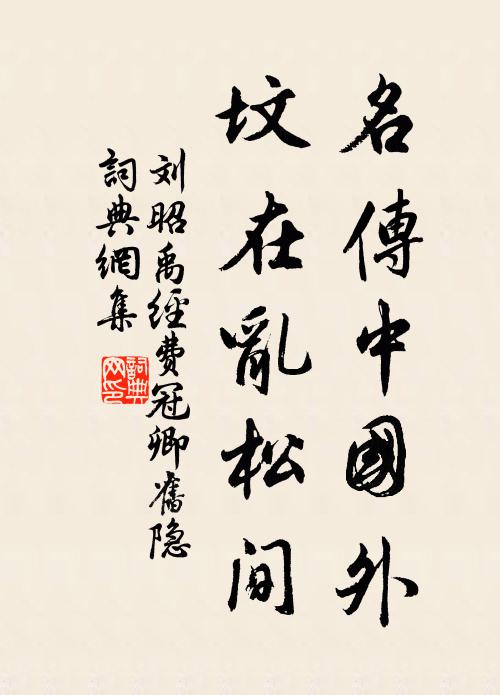 名傳中國外
坟在亂松间
刘昭禹經費冠卿舊隐
詞典網集
詞典网印